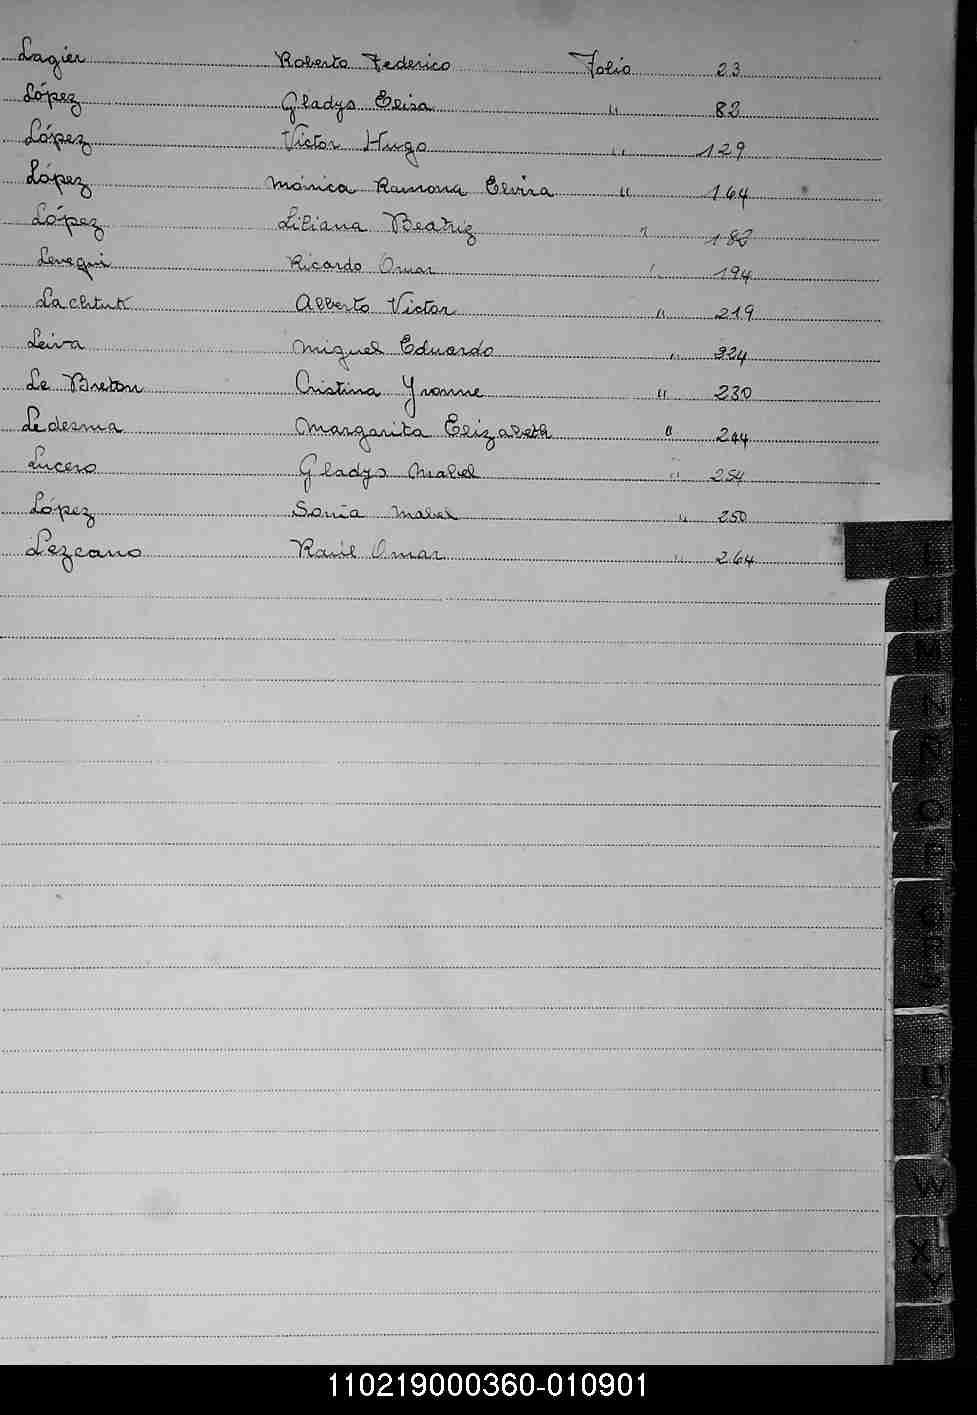 Lagier Roberto Federico Folio 23
López Gladys Elisa " 82
López Víctor Hugo " 129
López Mónica Ramona Elvira " 164
López Liliana Beatriz " 182
Ricardo Omar " 194
Lachtuk Alberto Víctor " 219
Leiva Miguel Eduardo " 224
Le Breton Cristina Yvonne " 230
Ledesma Margarita Elizabeth " 244
Lucero Gladys Mabel " 254
López Sonia Mabel " 250
Lezcano Raúl Omar " 264
L
M
N
Ñ
O
P
U
V
W
X
Y
110219000360-010901